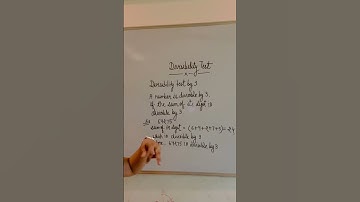 Divisibility Test
Divisibility test by 3
A number is divisible by 3
if the sum of its digit is
divisible by 3
sum of its digit = (6+9+2+7+5) =
which is divisible by 3
is divisible by 3